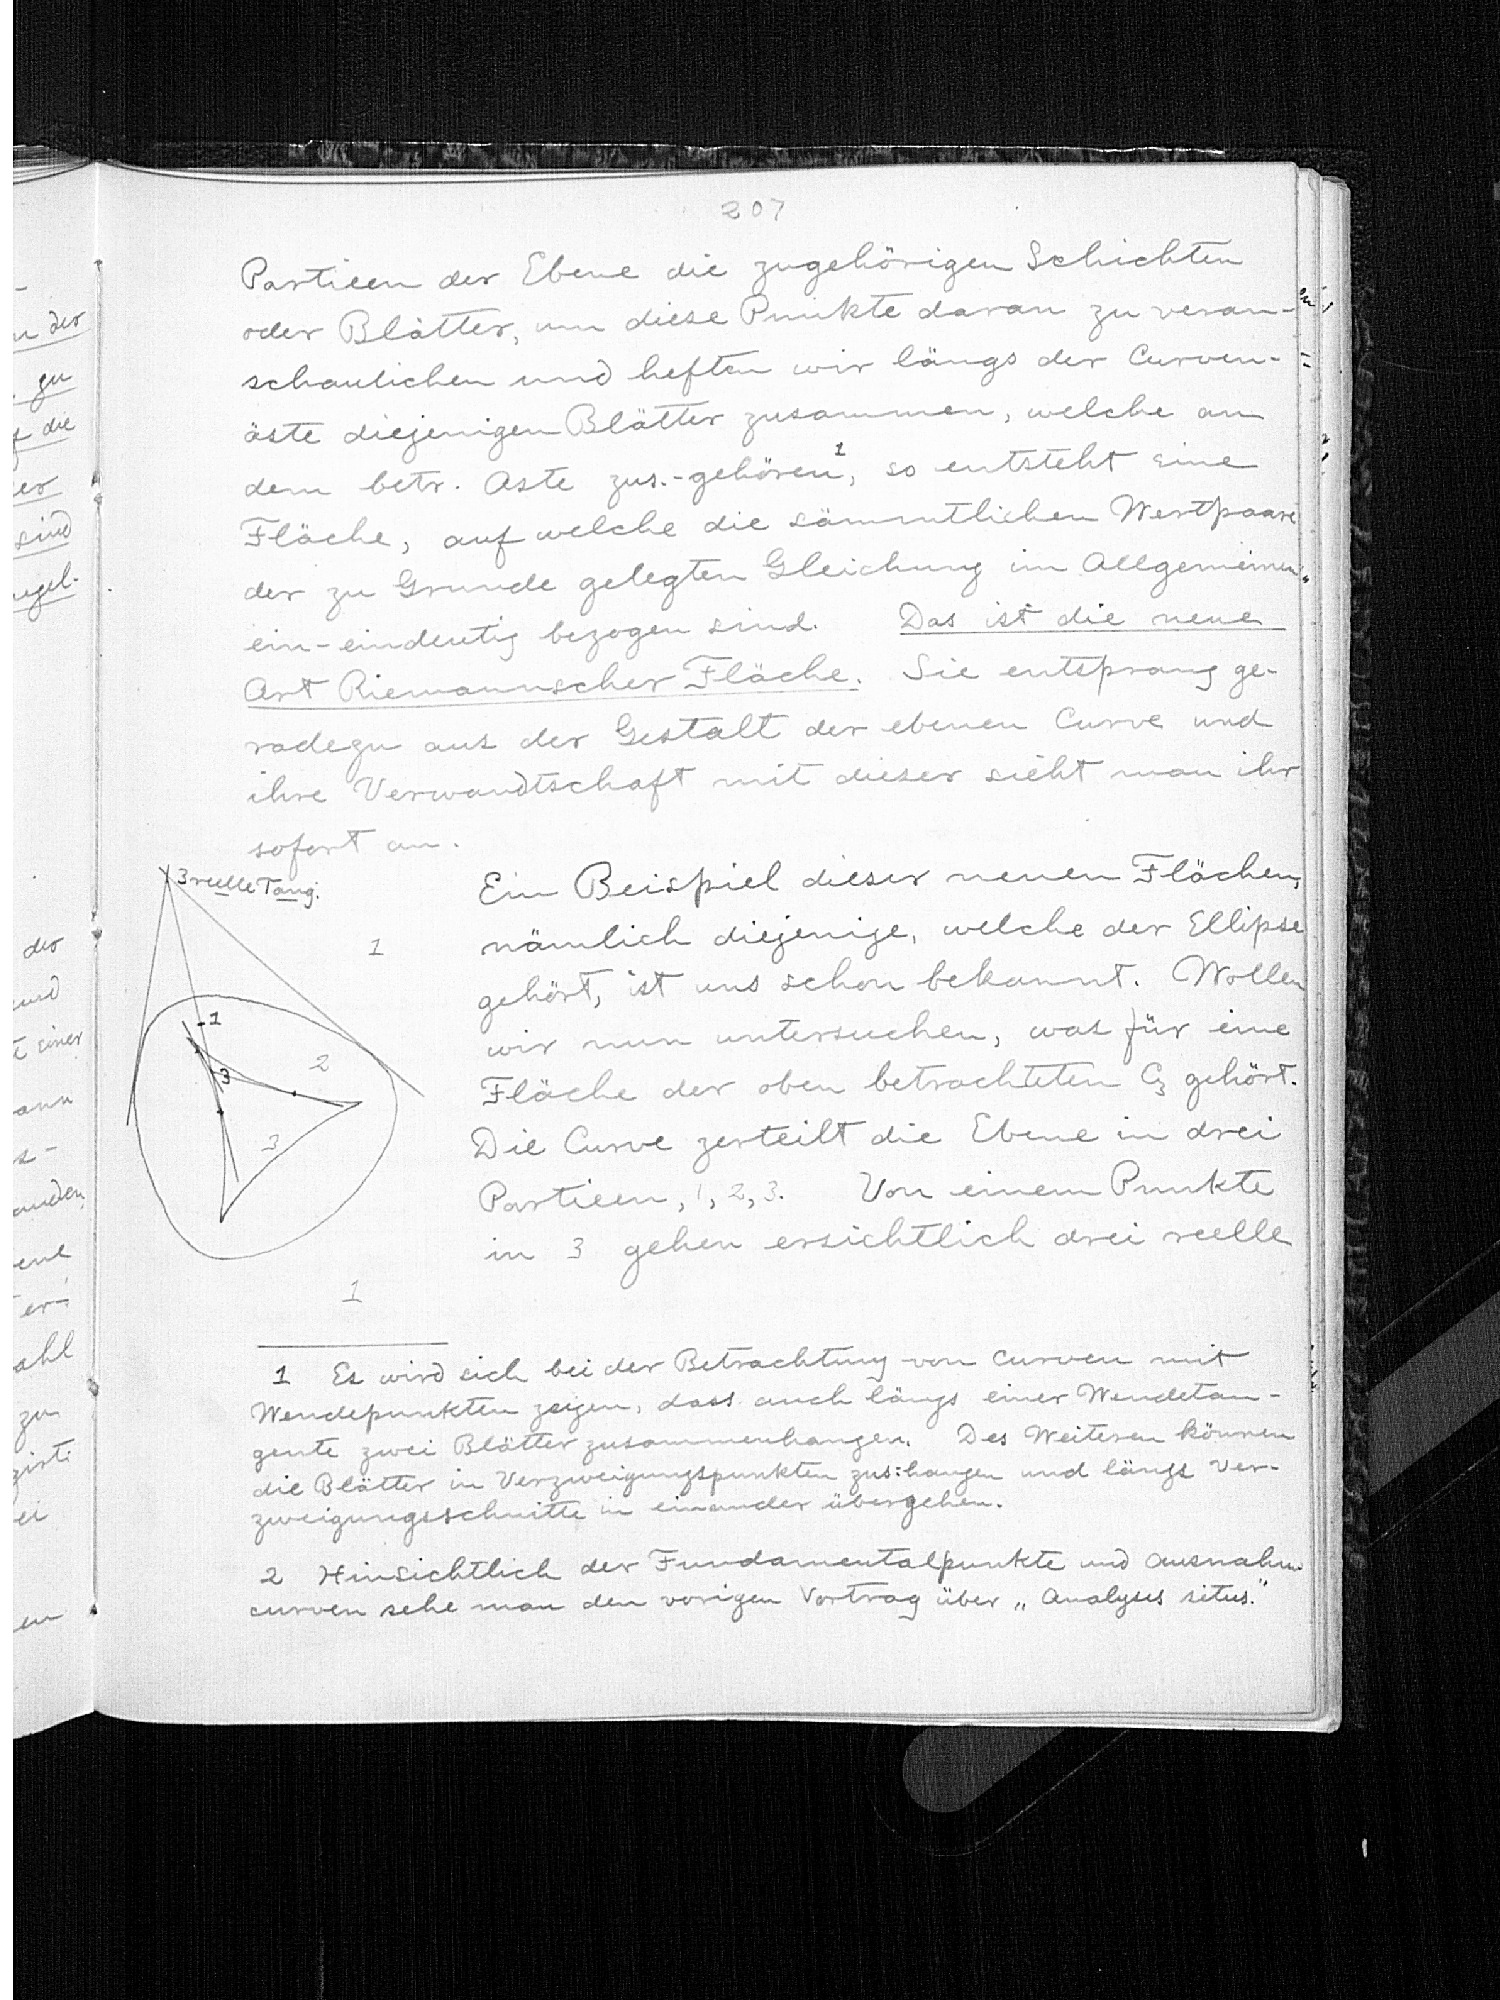 207
Partieen der Ebene die zugehörigen Schichten
oder Blätter, um diese Punkte daran zu veran-
schaulichen und heften wir längs der Curven-
äste diejenigen Blätter zusammen, welche an
dem betr. Aste zus.-gehören¹, so entsteht eine
Fläche, auf welche die sämmtlichen Wertpaare
der zu Grunde gelegten Gleichung im Allgemeinen²
ein-eindeutig bezogen sind. Das ist die neue
Art Riemannscher Fläche. Sie entsprang ge-
radezu aus der Gestalt der ebenen Curve und
ihre Verwandtschaft mit dieser sieht man ihr
sofort an.
3 reelle Tang.
1
1
2
3
3
1
Ein Beispiel dieser neuen Flächen,
nämlich diejenige, welche der Ellipse
gehört, ist uns schon bekannt. Wollen
wir nun untersuchen, was für eine
Fläche der oben betrachteten C₃ gehört.
Die Curve zerteilt die Ebene in drei
Partieen, 1, 2, 3. Von einem Punkte
in 3 gehen ersichtlich drei reelle
1 Es wird sich bei der Betrachtung von Curven mit
Wendepunkten zeigen, dass auch längs einer Wendetan-
gente zwei Blätter zusammenhangen. Des Weiteren können
die Blätter in Verzweigungspunkten zus:hangen und längs Ver-
zweigungsschnitte in einander übergehen.
2 Hinsichtlich der Fundamentalpunkte und Ausnahm
curven sehe man den vorigen Vortrag über „Analysis situs."
der
zu
die
er
sind
der
und
einer
ahl
zu
ei
en